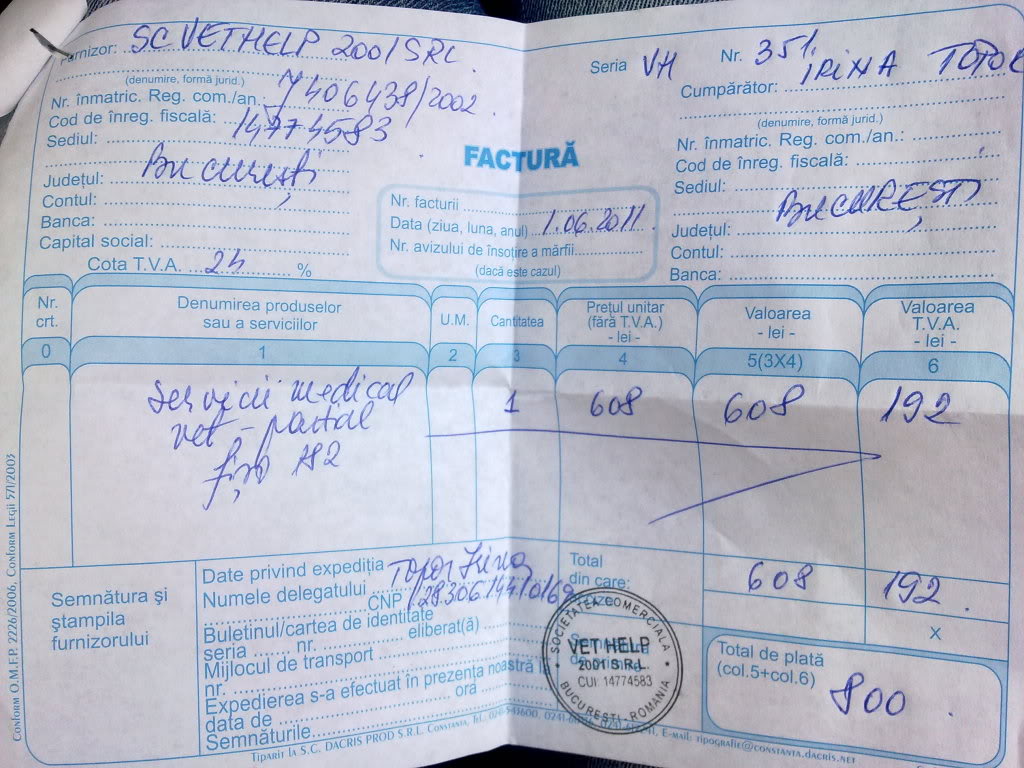 Furnizor: SC VETHELP 2001 SRL
(denumire, formă jurid.)
Nr. înmatric. Reg. com./an. J406438/2002
Cod de înreg. fiscală: 14774583
Sediul:
Județul: București
Contul:
Banca:
Capital social:
Cota T.V.A. 24 %
Seria VH Nr. 351.
Cumpărător: IRINA TOPOR
(denumire, formă jurid.)
Nr. înmatric. Reg. com./an.:
Cod de înreg. fiscală:
Sediul:
BUCUREȘTI
Județul:
Contul:
Banca:
FACTURĂ
Nr. facturii
Data (ziua, luna, anul) 1.06.2011
Nr. avizului de însoțire a mărfii
(dacă este cazul)
Nr. crt.
Denumirea produselor sau a serviciilor
U.M.
Cantitatea
Prețul unitar (fără T.V.A.) - lei -
Valoarea - lei -
Valoarea T.V.A. - lei -
0 1 2 3 4 5(3X4) 6
Servicii medical 1 608 608 192
vet - partal
fișa 182
Semnătura și ștampila furnizorului
Date privind expediția
Numele delegatului Topor Irina
CNP
Buletinul/cartea de identitate
seria nr. eliberat(ă)
Mijlocul de transport
nr.
Expedierea s-a efectuat în prezența noastră la
data de ora
Semnăturile
Total din care: 608 192
X
Total de plată (col.5+col.6) 800
SOCIETATEA COMERCIALA
VET HELP
2001 S.R.L.
CUI: 14774583
BUCUREȘTI - ROMANIA
Tiparit la S.C. DACRIS PROD S.R.L. Constanta, Tel.
E-mail: tipografie@constanta.dacris.net
Conform O.M.F.P. 2226/2006, Conform Legii 571/2003